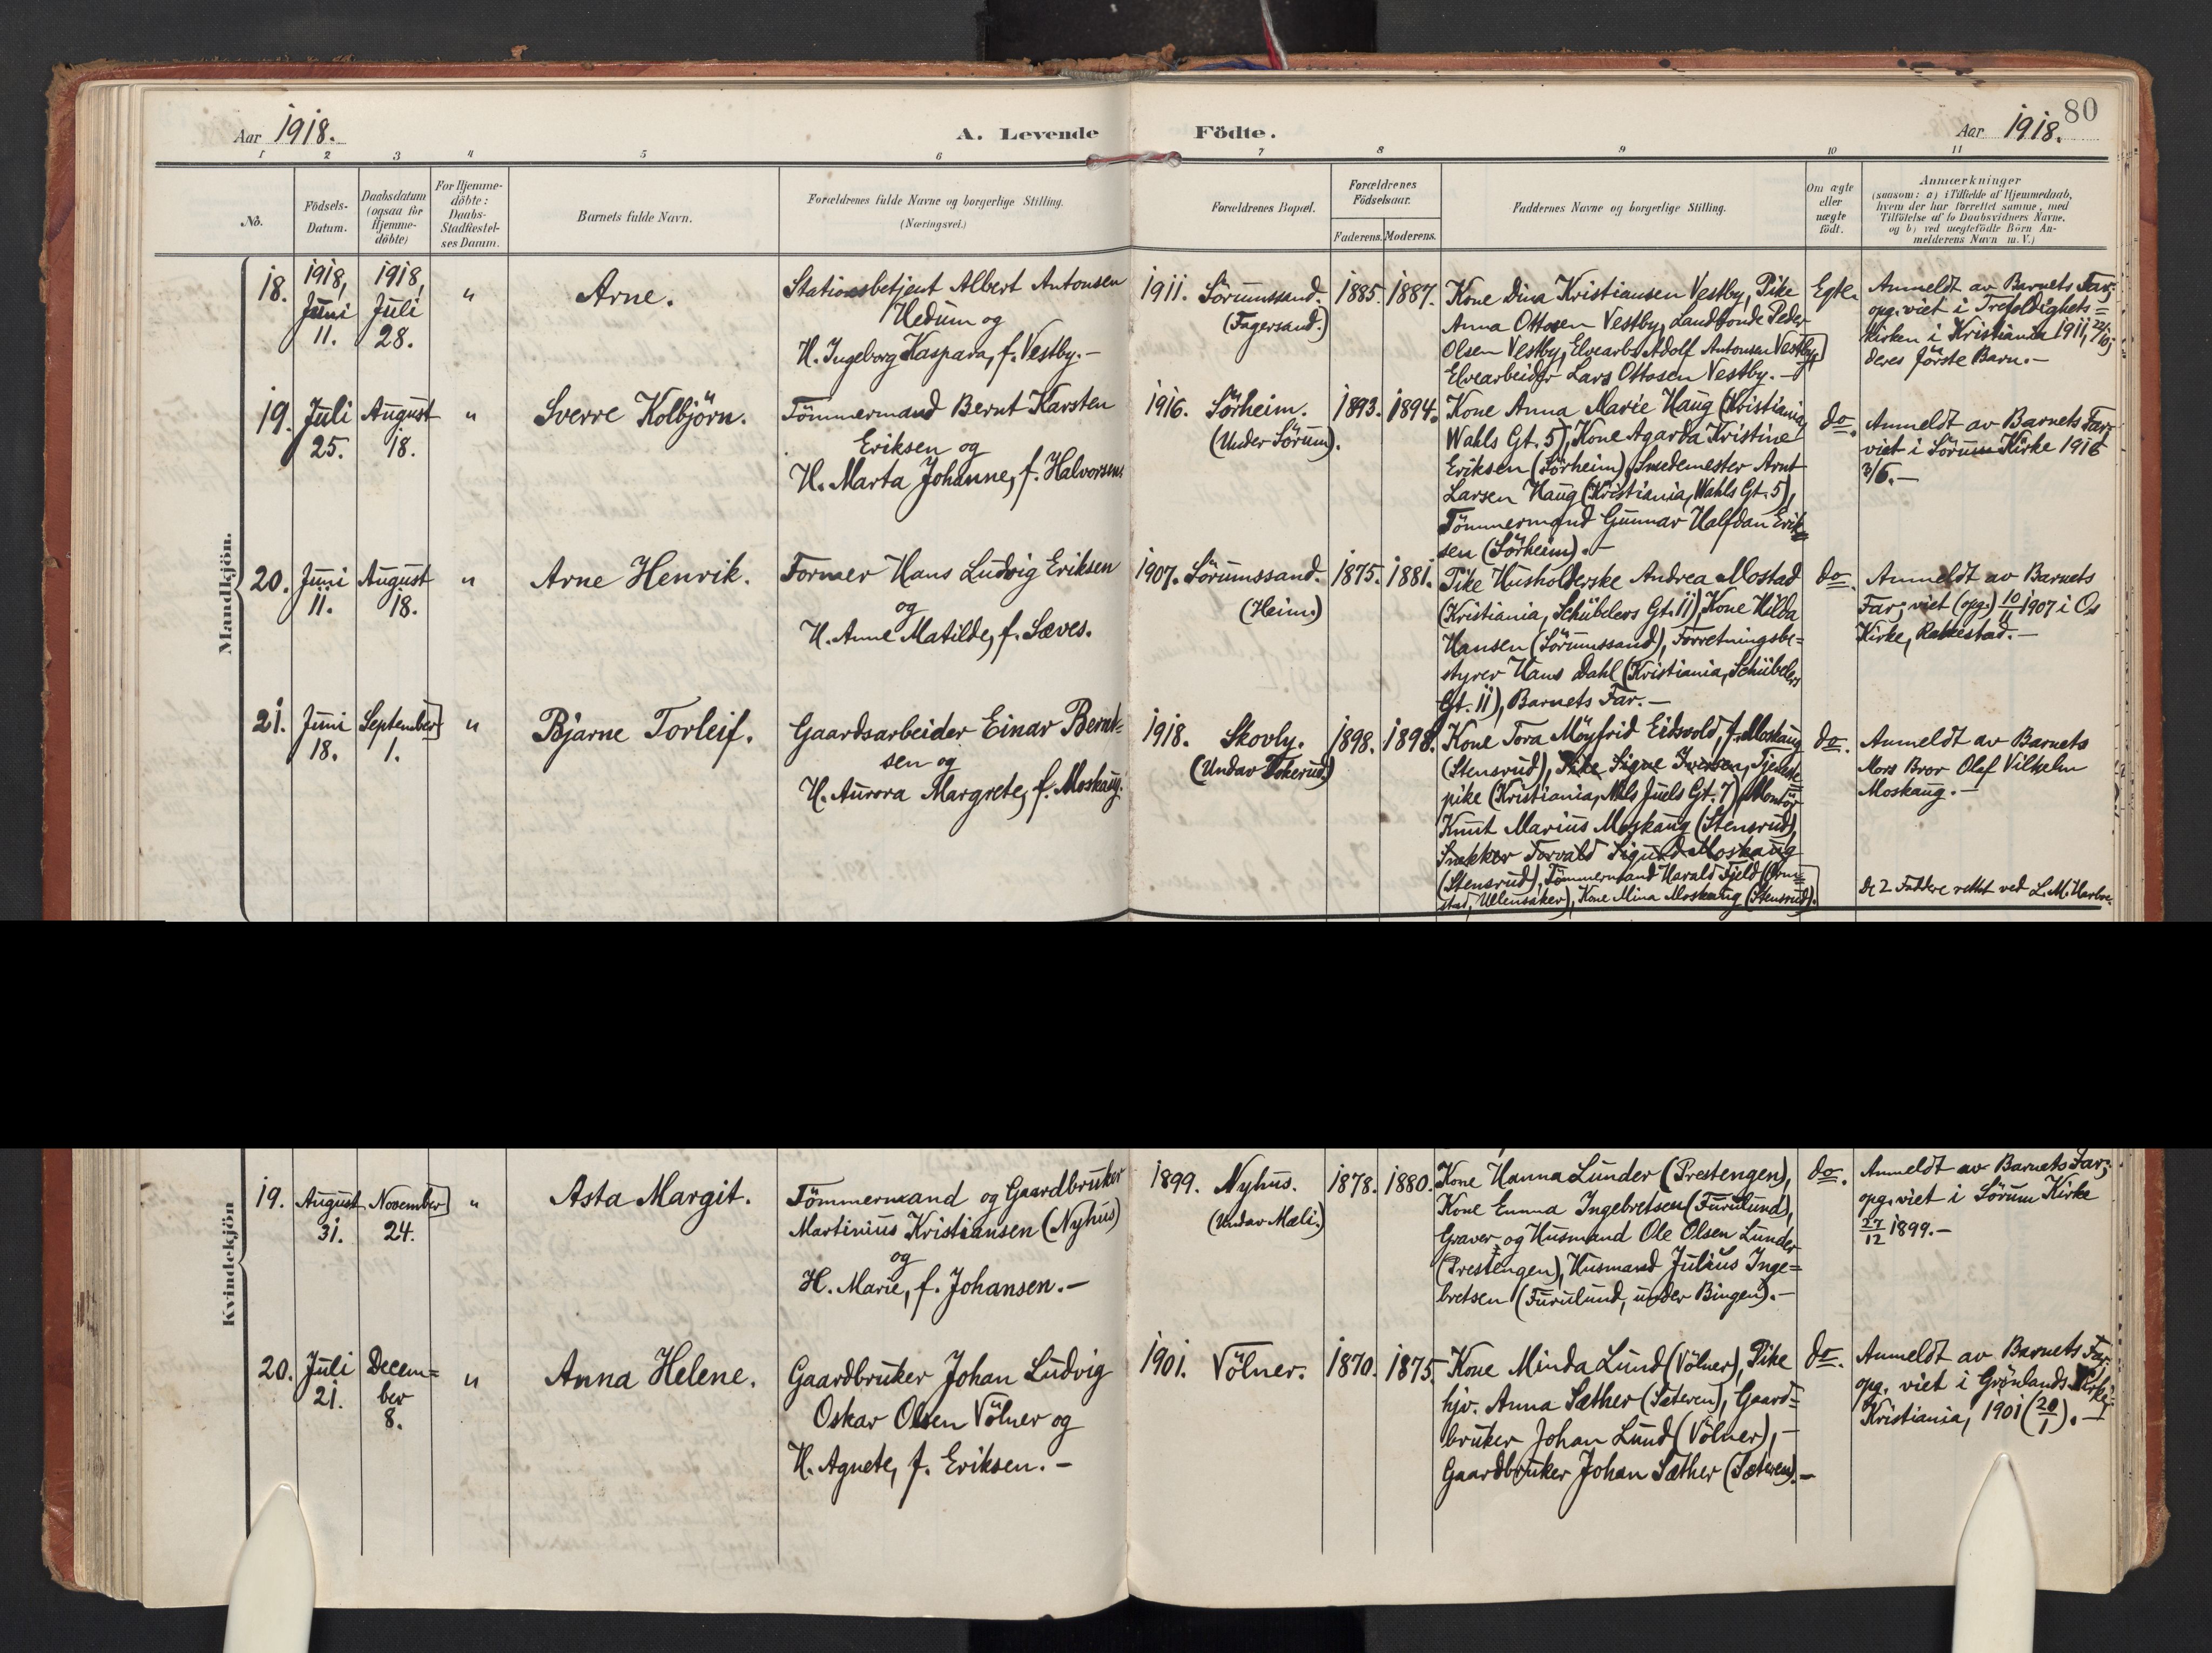 80
Aar 1918.
A. Levende Födte.
Aar 1918.
1 2 3 4 5 6 7 8 9 10 11
No.
Födsels-
Datum.
Daabsdatum
(ogsaa for
Hjemme-
döbte)
For Hjemme-
döbte:
Daabs-
Stadfæstel-
ses Datum.
Barnets fulde Navn.
Forældrenes fulde Navne og borgerlige Stilling.
(Næringsvei.)
Forældrenes Bopæl.
Forældrenes
Födselsaar.
Faderens. Moderens.
Faddernes Navne og borgerlige Stilling.
Om ægte
eller
uægte
födt.
Anmærkninger
(saasom: a) i Tilfælde af Hjemmedaab,
hvem der har forrettet samme, med
Tilföielse af to Daabsvidners Navne.
og b) ved uægtefödte Börn An-
melderens Navn m.V.)
Mandkjön.
18.
1918,
Juni
11.
1918,
Juli
28.
"
Arne.
Stationsbetjent Albert Antonsen
Hedum og
H. Ingeborg Kaspara, f. Vestby.-
1911. Sörumssand.
(Fagersand.)
1885. 1887.
Kone Dina Kristiansen Vestby, Pike
Anna Ottosen Vestby, Landbonde Peder
Olsen Vestby, Elvearb. Adolf Antonsen Vestby,
Elvearbeider Lars Ottosen Vestby.-
Egte.
Anmeldt av Barnets Far;
opg. viet i Trefoldigheds=
kirken i Kristiania 1911, 22/10;
deres förste Barn.-
19.
Juli
25.
August
18.
"
Sverre Kolbjörn.
Tömmermand Bernt Karsten
Eriksen og
H. Marta Johanne, f. Halvorsen.
1916. Sörheim.
(Under Sörum).
1893. 1894.
Kone Anna Marie Haug (Kristiania,
Wahls Gt. 5), Kone Agarda Kristine
Eriksen (Sörheim), Smedemester Arnt
Larsen Haug (Kristiania, Wahls Gt. 5),
Tömmermand Gunnar Halfdan Erik=
sen (Sörheim).-
do.
Anmeldt av Barnets Far;
viet i Sörum Kirke 1916
3/6.-
20.
Juni
11.
August
18.
"
Arne Henrik.
Former Hans Ludvig Eriksen
og
H. Anne Matilde, f. Sæves.
1907. Sörumssand.
(Heim.)
1875. 1881.
Pike Husholderske Andrea Mostad
(Kristiania, Schübelers Gt. 11), Kone Hilda
Hansen (Sörumssand), Forretningsbe=
styrer Hans Dahl (Kristiania, Schübelers
Gt. 11), Barnets Far.-
do.
Anmeldt av Barnets
Far; viet (opg.) 10/11 1907 i Os
Kirke, Rakkestad.-
21.
Juni
18.
September
1.
"
Bjarne Torleif.
Gaardsarbeider Einar Bernt=
sen og
H. Aurora Margrete, f. Moskaug.
1918. Skovly.
(Undav Tokerud.)
1898. 1898.
Kone Tora Möyfrid Eidsvold, f. Moskaug
(Stensrud), Pike Signe Iversen, Tjeneste
pike (Kristiania, Nils Juels Gt. 7), Montör
Knut Marius Moskaug (Stensrud),
Snekker Torvald Sigurd Moskaug
(Stensrud), Tömmermand Harald Fjeld (Orm=
stad, Ullensaker), Kone Mina Moskaug (Stensrud).
do.
Anmeldt av Barnets
Mors Bror Olaf Vilhelm
Moskaug.-
de 2 Faddere rettet ved L. M.
Kvindekjön
19.
August
31.
November
24.
"
Asta Margit.
Tömmermand og Gaardbruker
Martinius Kristiansen (Nyhus)
og
H. Marie, f. Johansen.-
1899. Nyhus.
(Undav Mæli.)
1878. 1880.
Kone Hanna Lunder (Prestengen),
Kone Emma Ingebretsen (Furulund),
Graver og Husmand Ole Olsen Lunder
(Prestengen), Husmand Julius Inge=
bretsen (Furulund, under Bingen).-
do.
Anmeldt av Barnets Far;
opg. viet i Sörum Kirke
27/12 1899.-
20.
Juli
21.
Decem=
ber
8.
"
Anna Helene.
Gaardbruker Johan Ludvig
Oskar Olsen Völner og
H. Agnete, f. Eriksen.-
1901. Völner.
1870. 1875.
Kone Minda Lund (Völner), Pike
hjv. Anna Sæther (Sæteren), Gaard=
bruker Johan Lund (Völner),-
Gaardbruker Johan Sæther (Sæteren).-
do.
Anmeldt av Barnets Far;
opg. viet i Grönlands Kirke,
Kristiania, 1901 (20/1).-